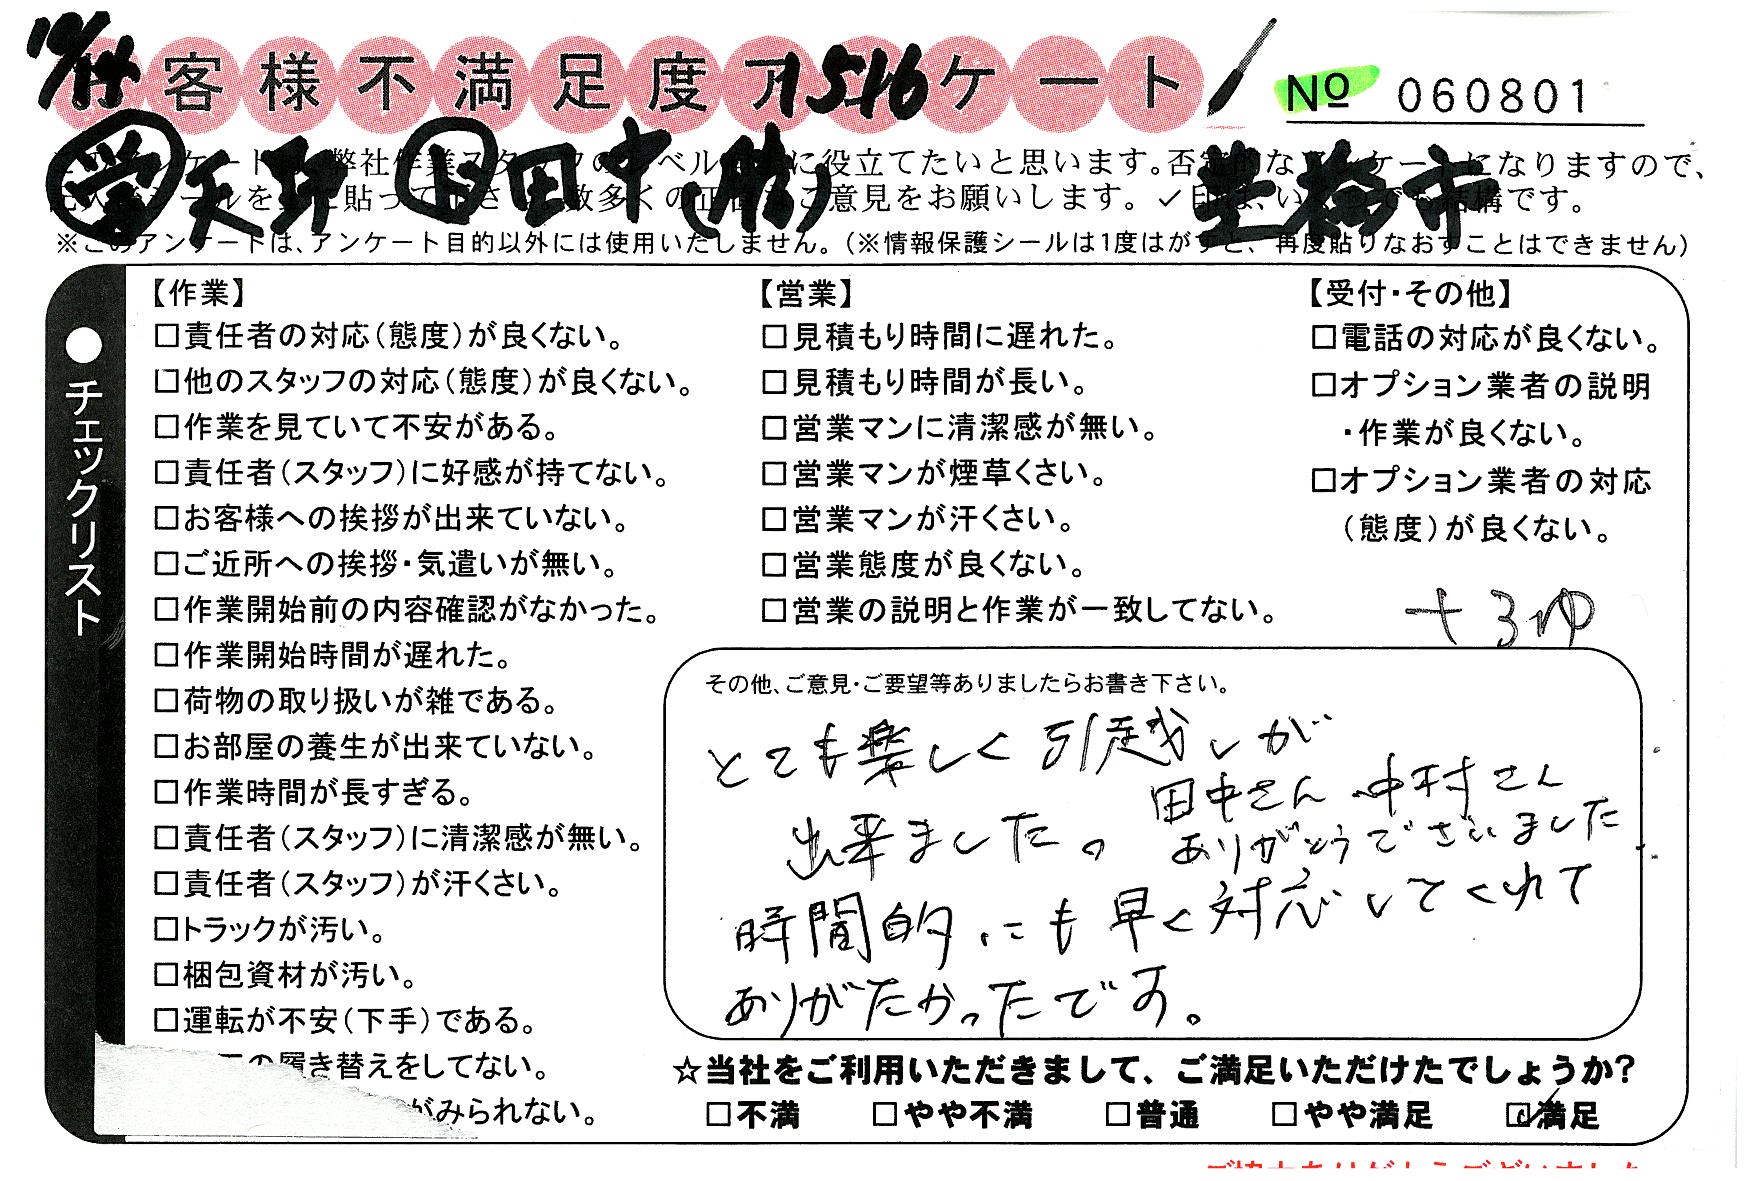 10/14
お客様不満足度アンケート
1516
No 060801
営 天野 日 田中(佑) 豊橋市
弊社作業スタッフのレベル
に役立てたいと思います。否定的なアンケートになりますので、
ご意見をお願いします。✓印は、いくつでも結構です。
※このアンケートは、アンケート目的以外には使用いたしません。(※情報保護シールは1度はがすと、再度貼りなおすことはできません)
●チェックリスト
【作業】
□責任者の対応(態度)が良くない。
□他のスタッフの対応(態度)が良くない。
□作業を見ていて不安がある。
□責任者(スタッフ)に好感が持てない。
□お客様への挨拶が出来ていない。
□ご近所への挨拶・気遣いが無い。
□作業開始前の内容確認がなかった。
□作業開始時間が遅れた。
□荷物の取り扱いが雑である。
□お部屋の養生が出来ていない。
□作業時間が長すぎる。
□責任者(スタッフ)に清潔感が無い。
□責任者(スタッフ)が汗くさい。
□トラックが汚い。
□梱包資材が汚い。
□運転が不安(下手)である。
の履き替えをしてない。
がみられない。
【営業】
□見積もり時間に遅れた。
□見積もり時間が長い。
□営業マンに清潔感が無い。
□営業マンが煙草くさい。
□営業マンが汗くさい。
□営業態度が良くない。
□営業の説明と作業が一致してない。
【受付・その他】
□電話の対応が良くない。
□オプション業者の説明
・作業が良くない。
□オプション業者の対応
(態度)が良くない。
その他、ご意見・ご要望等ありましたらお書き下さい。
とても楽しく引越しが
出来ました。
田中さん 中村さん
ありがとうございました
時間的にも早く対応してくれて
ありがたかったです。
☆当社をご利用いただきまして、ご満足いただけたでしょうか?
□不満 □やや不満 □普通 □やや満足 ☑満足
ご協力ありがとうございました